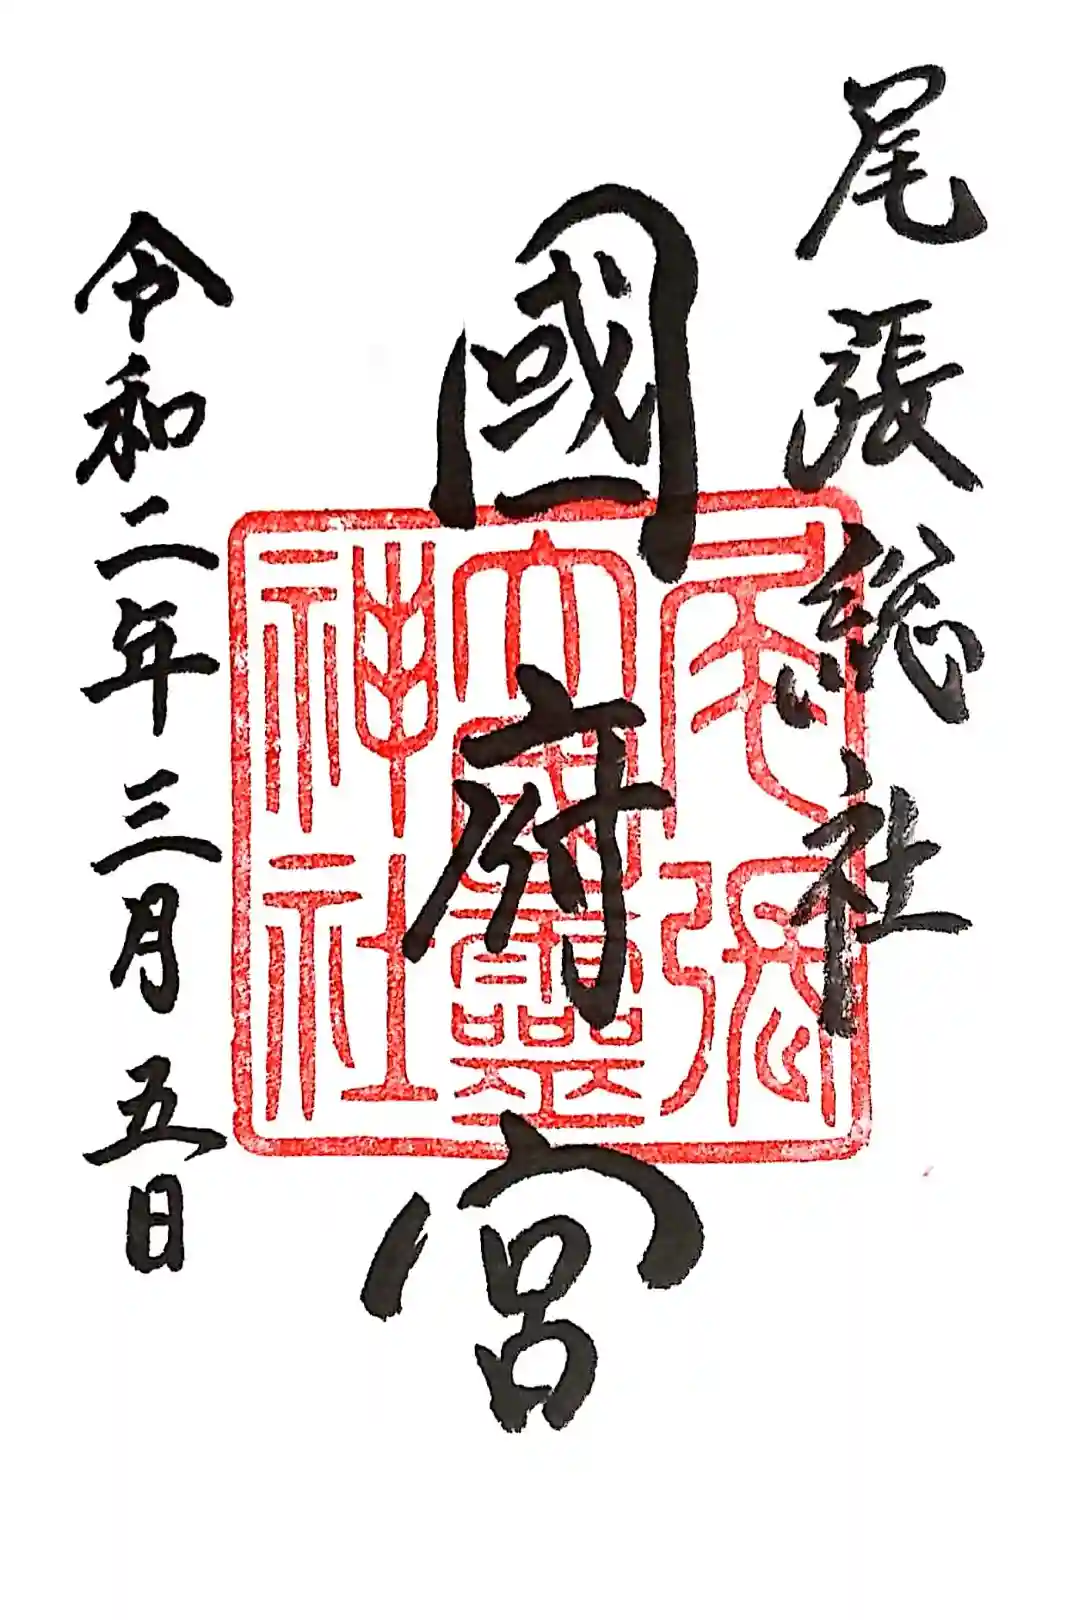 尾張総社
國府宮
令和二年三月五日
尾張
大國霊
神社